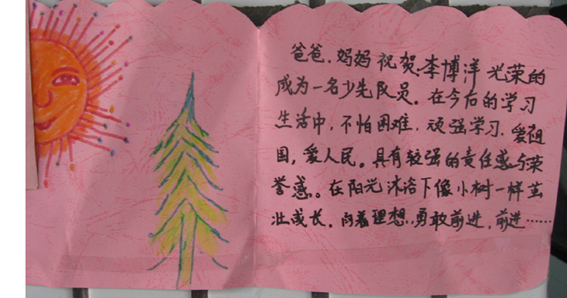 爸爸、妈妈祝贺李博洋光荣的
成为一名少先队员。在今后的学习
生活中,不怕困难,顽强学习,爱祖
国,爱人民。具有较强的责任感与荣
誉感。在阳光沐浴下像小树一样茁
壮成长。向着理想,勇敢前进,前进……